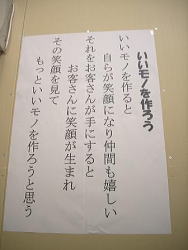 いいモノを作ろう
いいモノを作ると
自らが笑顔になり仲間も嬉しい
それをお客さんが手にすると
お客さんに笑顔が生まれ
その笑顔を見て
もっといいモノを作ろうと思う